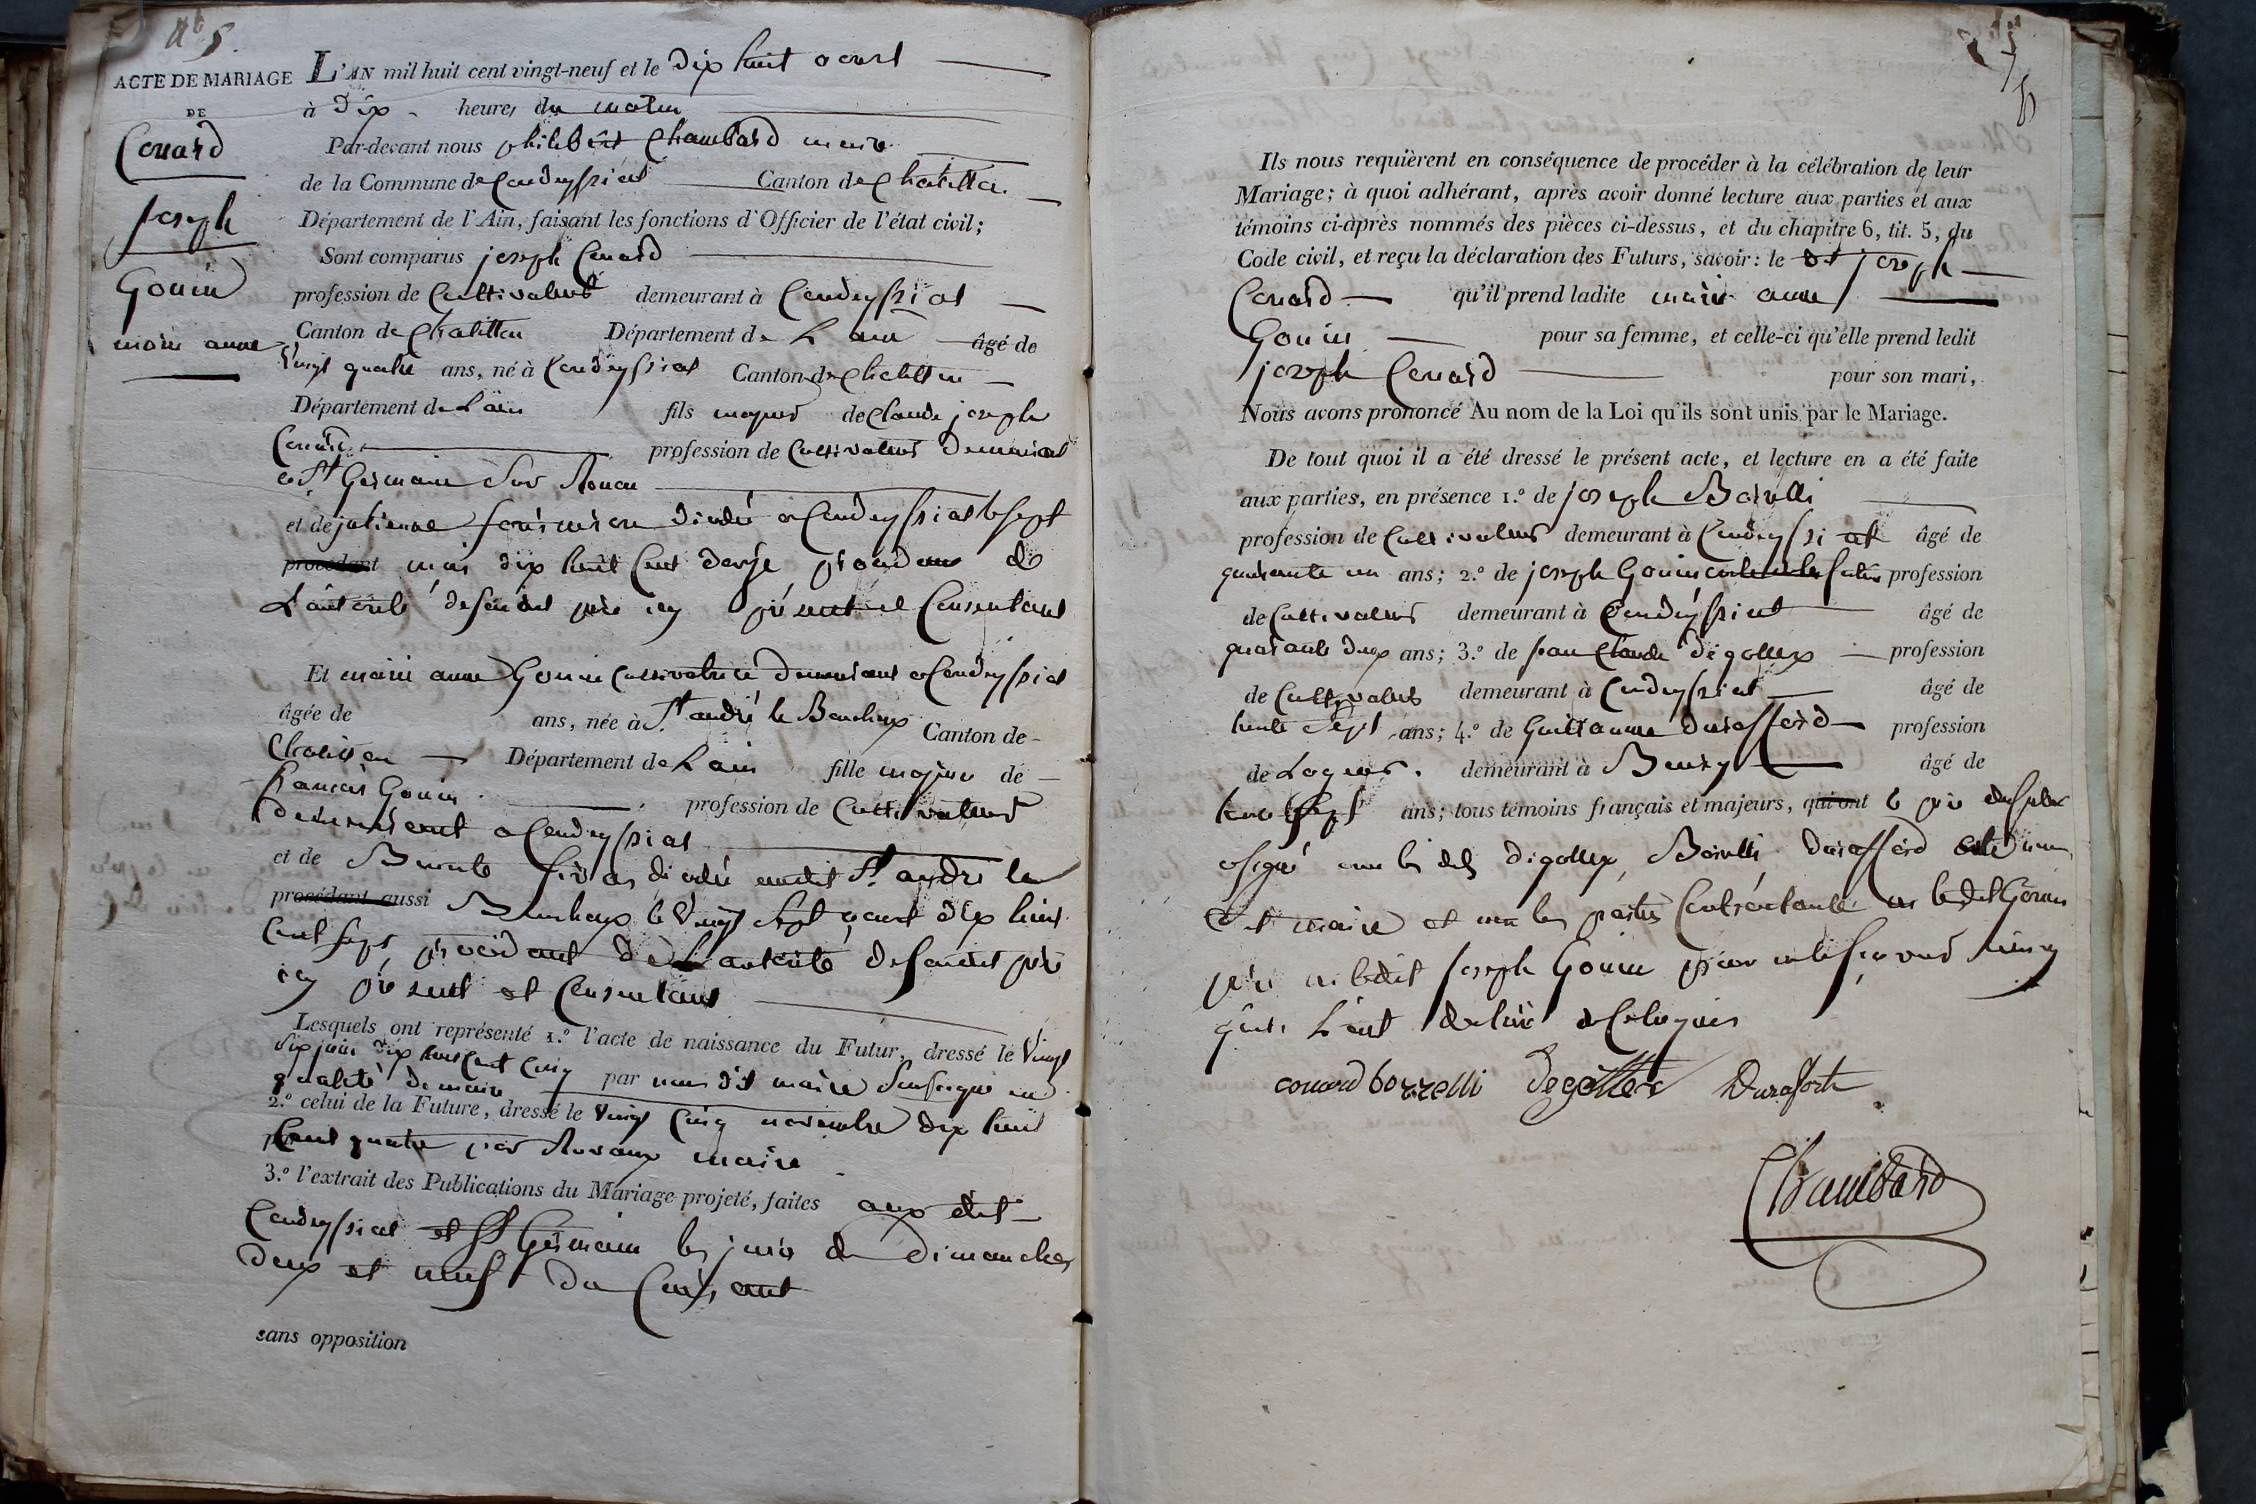 N° 5.
ACTE DE MARIAGE
DE
Conard
Joseph
Gouin
marie anne
L'AN mil huit cent vingt-neuf et le dix huit aoust
à Dix heures du matin
Par-devant nous philibert Chambard maire
de la Commune de Condeyssiat Canton de Chatillon
Département de l'Ain, faisant les fonctions d'Officier de l'état civil;
Sont comparus joseph Conard
profession de Cultivateur demeurant à Condeyssiat
Canton de Chatillon Département de L'ain âgé de
vingt quatre ans, né à Condeyssiat Canton de Chatillon
Département de L'ain fils majeur de Claude joseph
Conard profession de Cultivateur Demeurant
a St Germain Sur Renon
et de julienne décédée a Condeyssiat le sept
procédant mai dix huit Cent procédant de
L'autorité de son dit père icy présent et Consentant
Et marie anne Gouin Cultivatrice Demeurant a Condeyssiat
âgée de ans, née à St andré le Bouchoux Canton de
Chatillon Département de L'ain fille majeure de
francois Gouin profession de Cultivateur
demeurant a Condeyssiat
et de Benoite décédée audit St andré le
procédant aussi Bouchoux le Vingt Sept aout dix huit
Cent Sept, procédant de L'autorité de son dit père
icy présent et Consentant
Lesquels ont représenté 1.° l'acte de naissance du Futur, dressé le Vingt
dix huit Cent Cinq par nous dit maire Soussigné en
qualité de maire
2.° celui de la Future, dressé le Vingt Cinq novembre dix huit
Cent quatre par maire
3.° l'extrait des Publications du Mariage projeté, faites aux dits
Condeyssiat et St Germain les jours de Dimanches
Deux et neuf Du Courant
sans opposition
Ils nous requièrent en conséquence de procéder à la célébration de leur
Mariage; à quoi adhérant, après avoir donné lecture aux parties et aux
témoins ci-après nommés des pièces ci-dessus, et du chapitre 6, tit. 5, du
Code civil, et reçu la déclaration des Futurs, savoir: le dt joseph
Conard qu'il prend ladite marie anne
Gouin pour sa femme, et celle-ci qu'elle prend ledit
joseph Conard pour son mari,
Nous avons prononcé Au nom de la Loi qu'ils sont unis par le Mariage.
De tout quoi il a été dressé le présent acte, et lecture en a été faite
aux parties, en présence 1.° de joseph Borelli
profession de Cultivateur demeurant à Condeyssiat âgé de
quarante un ans; 2.° de joseph Gouin profession
de Cultivateur demeurant à Condeyssiat âgé de
quarante deux ans; 3.° de jean Claude Degottex profession
de Cultivateur demeurant à Condeyssiat âgé de
trente Sept ans; 4.° de Guillaume Durafford profession
de demeurant à Buezy âgé de
trente Sept ans; tous témoins français et majeurs, qui ont le père du futur
signé avec les dts Degottex, Borelli Durafford et nous
Dit maire et non les parties Contractante ni ledit Gouin
père ni ledit joseph Gouin pour ne le Scavoir ainsy
qu'ils L'ont déclaré
conard borzelli Degottex Duraforte
Chambard